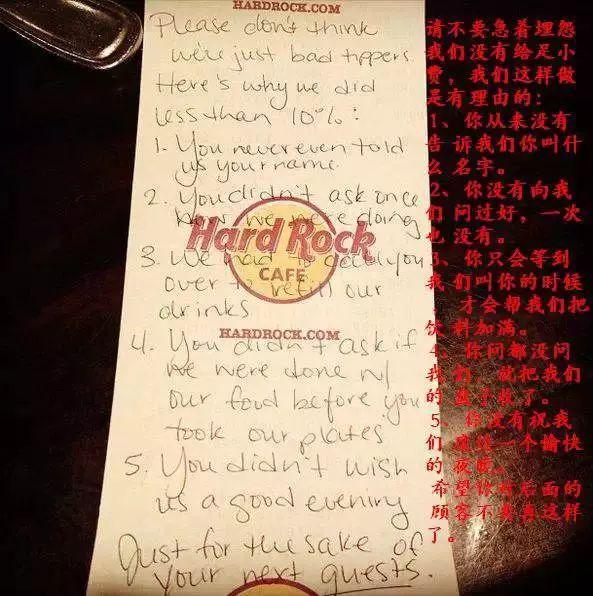 HARDROCK.COM
Please don't think
we're just bad tippers.
Here's why we did
less than 10%:
1. You never even told
us your name.
2. You didn't ask once
how we were doing
Hard Rock
CAFE
3. We had to call you
over to refill our
drinks
HARDROCK.COM
4. You didn't ask if
we were done w/
our food before you
took our plates
5. You didn't wish
us a good evening
Just for the sake of
your next guests.
请不要急着埋怨
我们没有给足小
费，我们这样做
是有理由的：
1、你从来没有
告诉我们你叫什
么名字。
2、你没有向我
们问过好，一次
也没有。
3、你只会等到
我们叫你的时候
，才会帮我们把
饮料加满。
4、你问都没问
我们，就把我们
的盘子收了。
5、你没有祝我
们度过一个愉快
的夜晚。
希望你对后面的
顾客不要再这样
了。